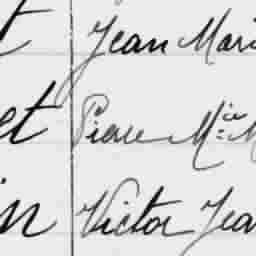 t Jean Mari
et Pierre M^ie M
in Victor Jea